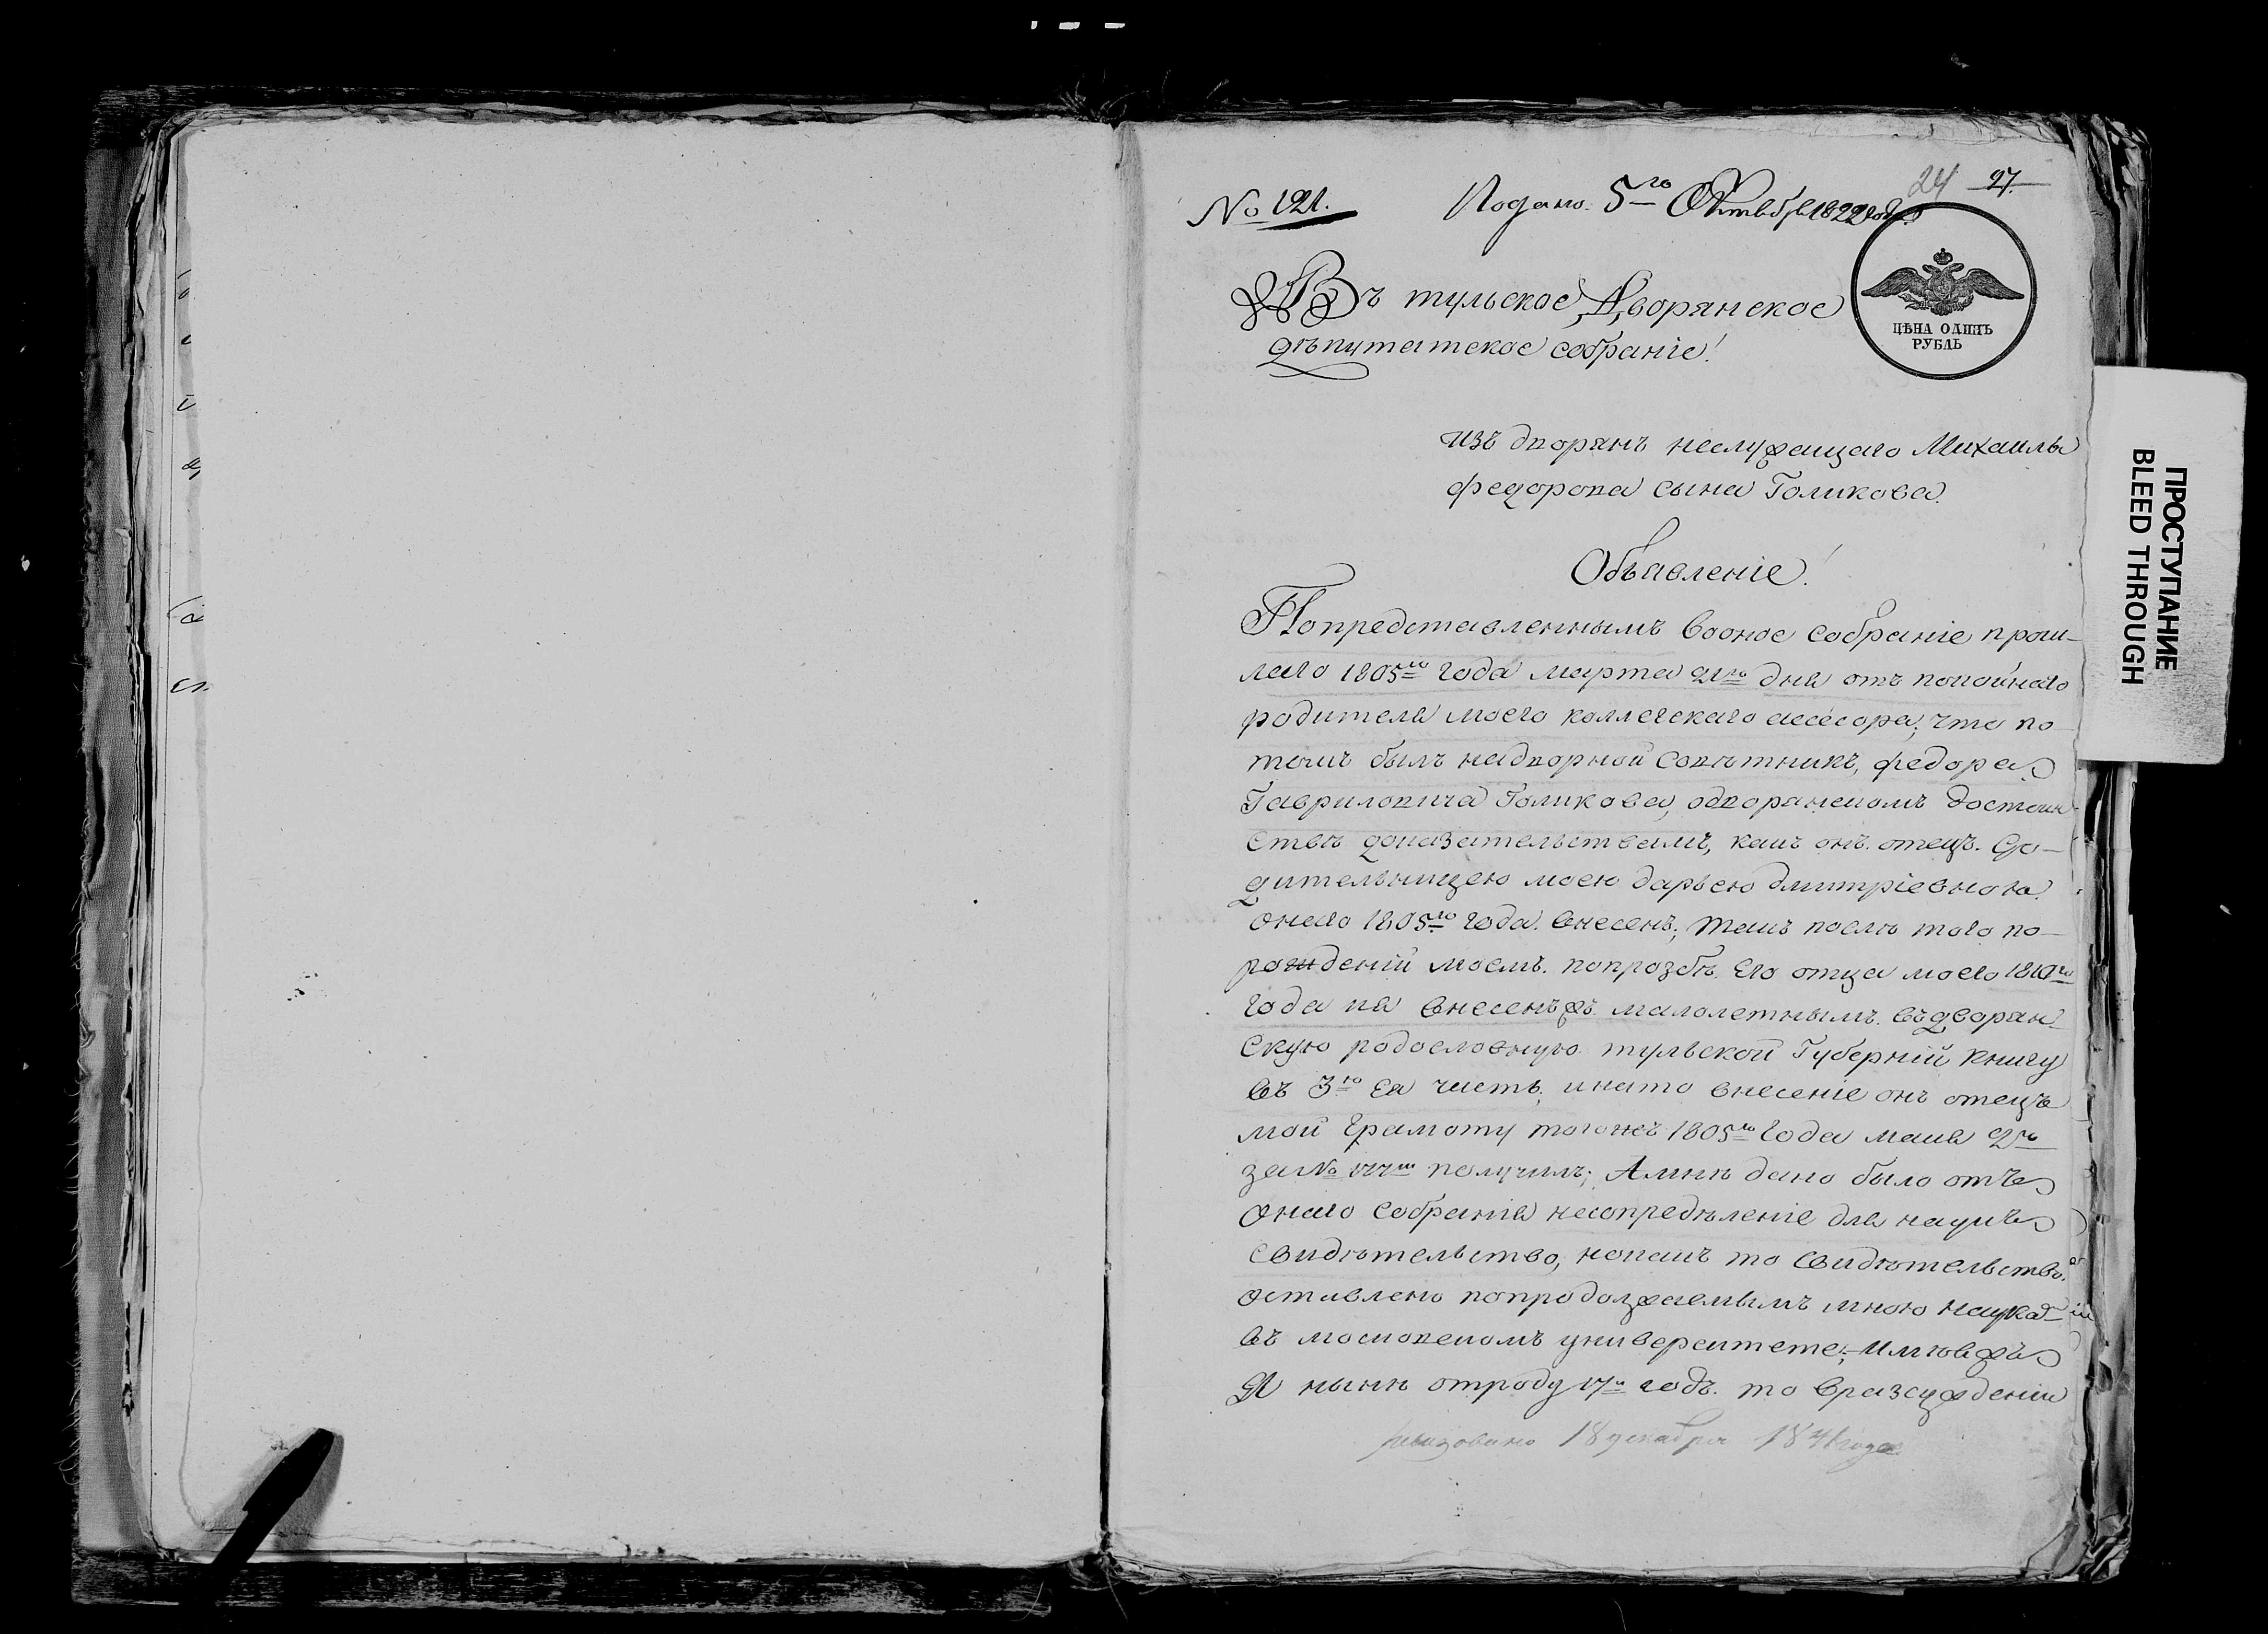 24 27.
№ 121. Подано. 5го Октября 1822 года
Въ тульское Дворянское
дѣпутатское собраніе!
ЦѢНА ОДИНЪ
РУБЛЬ
изъ дворянъ неслужащаго Михаилы
федорова сына Голикова.
Обьявленіе!
По представленнымъ вооное собраніе прош-
лаго 1805го года марта 21го дня отъ покойнаго
родителя моего коллегскаго асесора, что по
томъ былъ надворной совѣтникъ, федора
Гавриловича Голикова, одворянскомъ достоин-
ствѣ доказательствамъ, какъ онъ отецъ. Сро-
дительницею моею дарьею дмитріевною
онаго 1805го года. внесенъ; такъ послѣ того по
рождении моемъ. попрозбѣ. Его отца моего 1810го
года ия внесенъжъ. малолетнымъ. въдворян-
скую родословную тульской Губерніи книгу
въ 3ю Ея часть; инато внесеніе онъ отецъ
мой грамоту тогожъ 1805го года маия 2го
за № получилъ; Амнѣ дано было отъ
онаго собрания несопредѣленіе для наукъ
свидѣтельство, но какъ то свидѣтельство
оставлено попродолжаемымъ мною наука
въ московскомъ университете; Имѣвжъ
Я нынѣ отроду 17ть годъ. то вразсужденіи
ревизовано 18 декабря 1841 года
ПРОСТУПАНИЕ
BLEED THROUGH